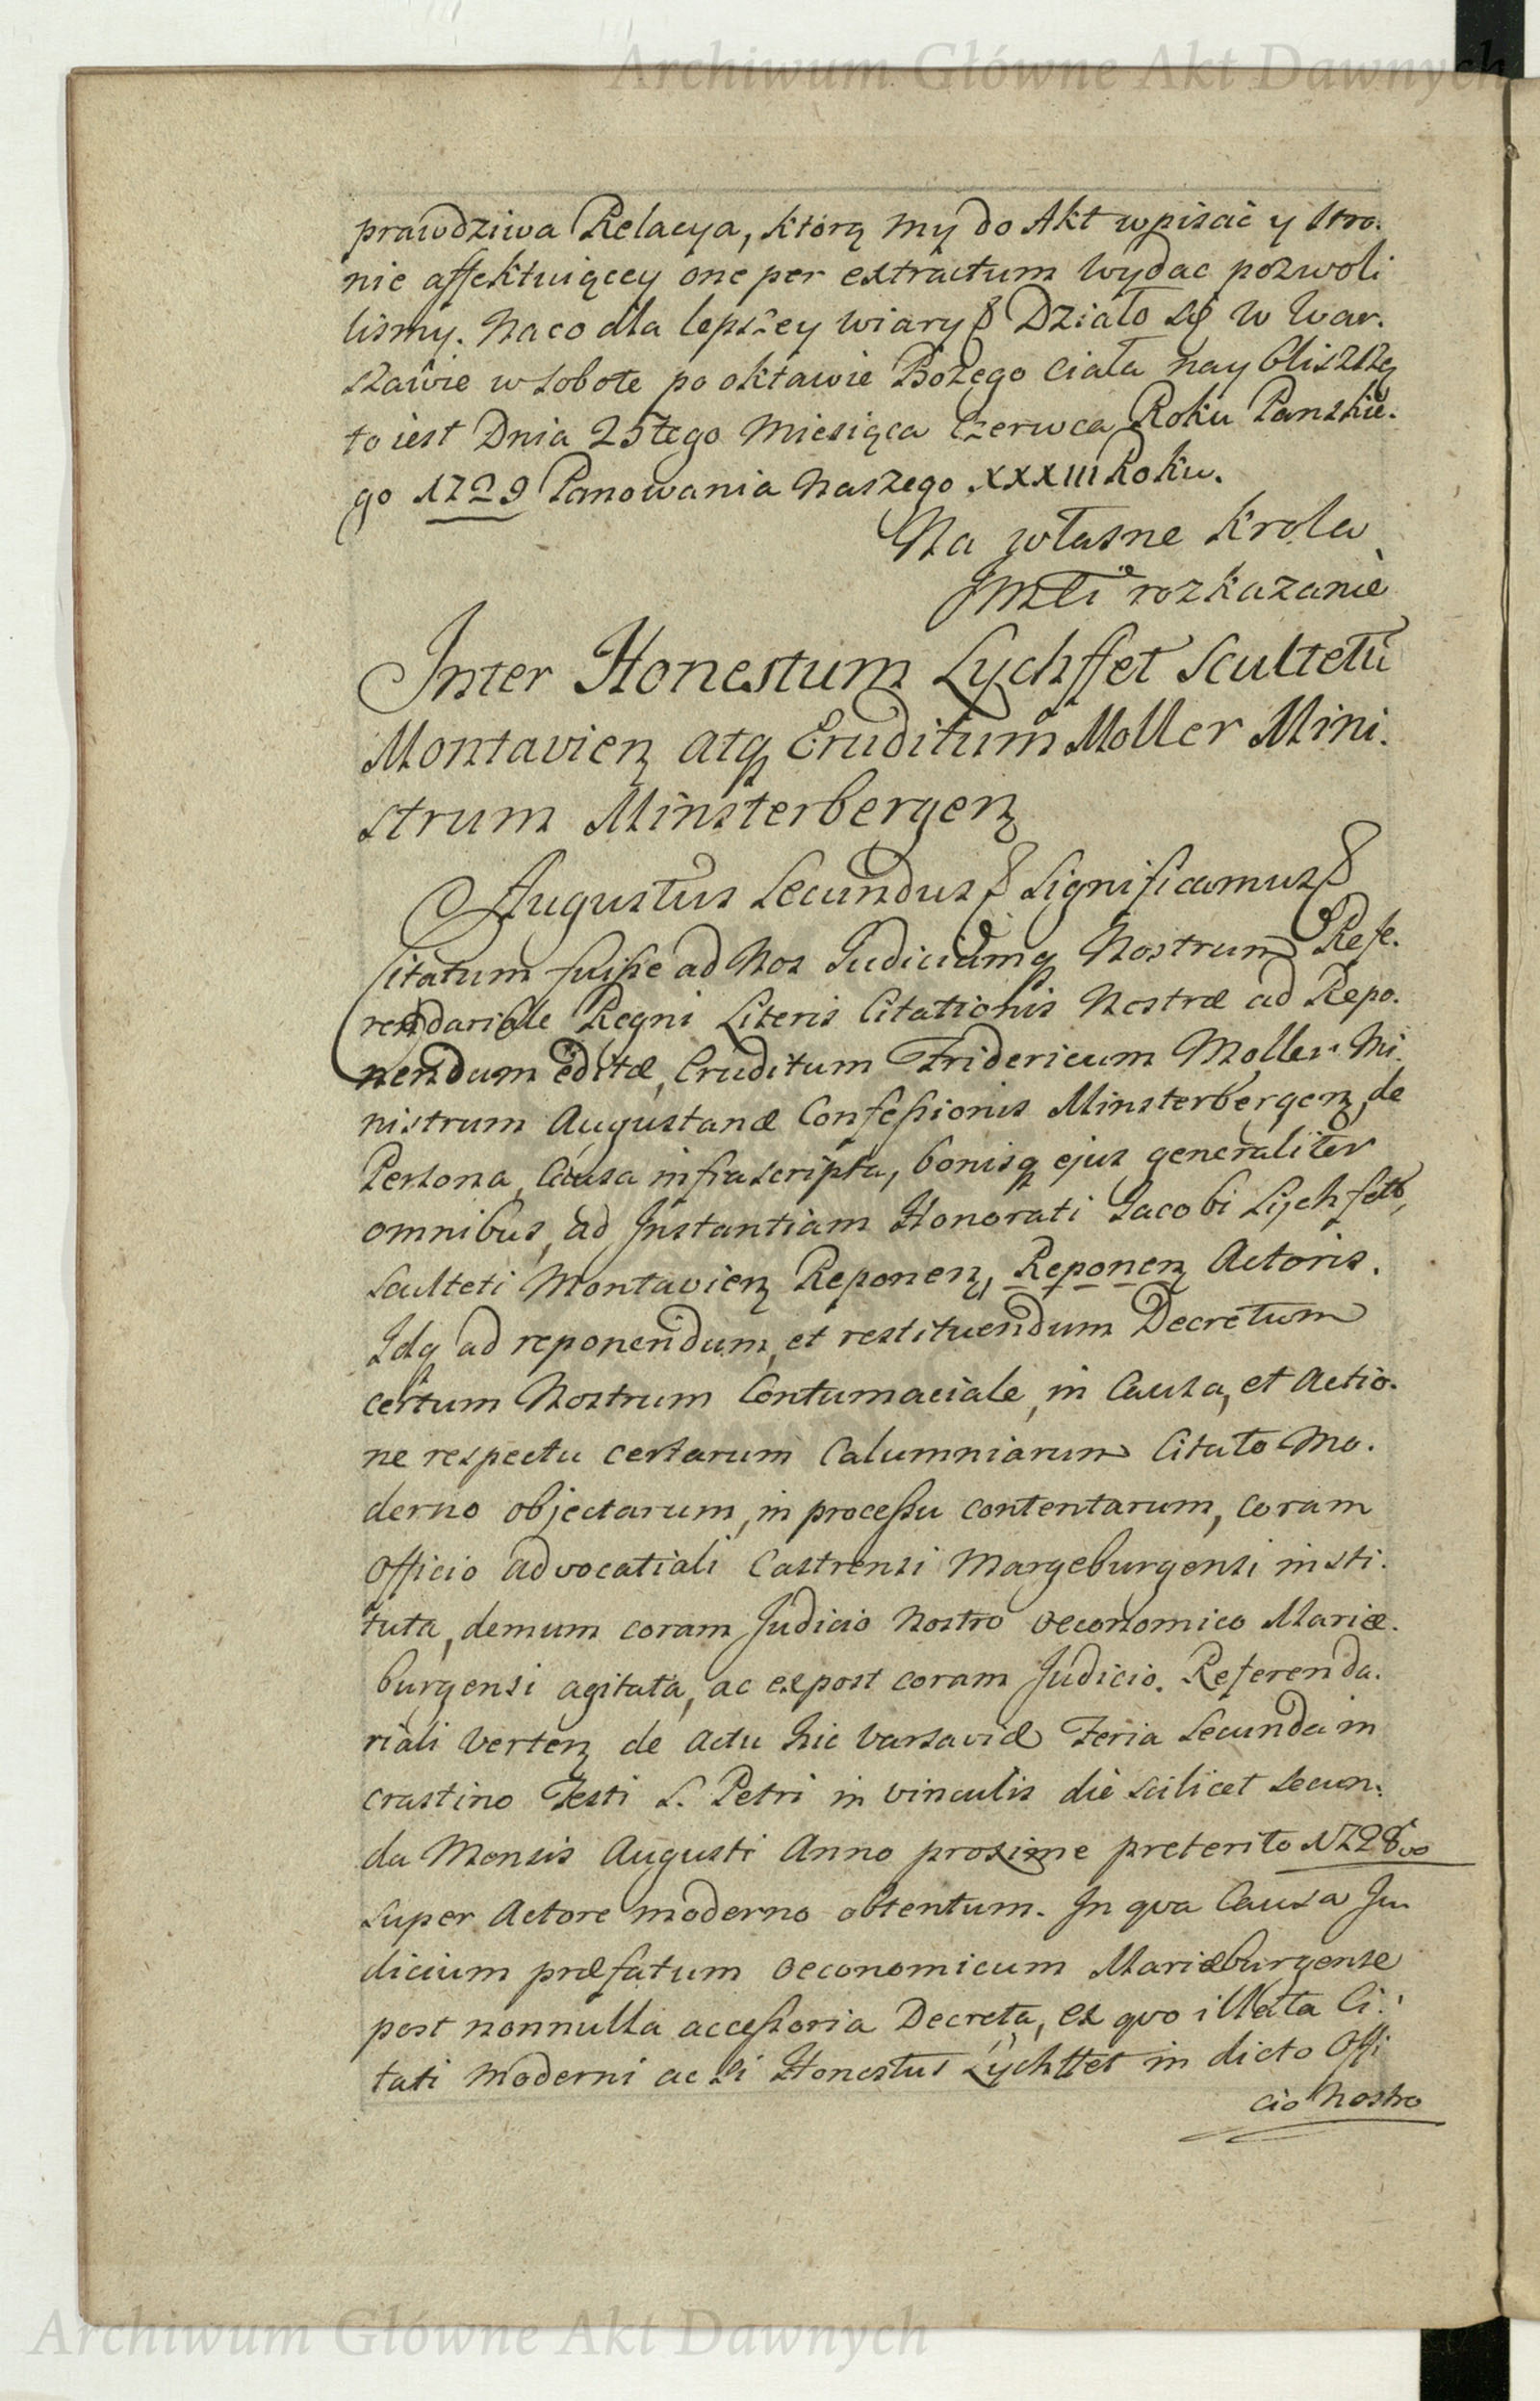 Archiwum Główne Akt Dawnych
prawdziwa Relacya, ktorą my do Akt wpisać y stro.
nie affektuiącey one per extractum wydac pozwoli
lismy. Na co dla lepszey wiary Działo się w War.
szawie w sobote po oktawie Bożego Ciała naybliszszą
to iest Dnia 25tego Miesiąca Czerwca Roku Panskie.
go 1729 Panowania Naszego XXXIII Roku.
Na własne Krola
JMci rozkazanie
Inter Honestum Lychffet Scultetū
Montavien atq Eruditum Moller Mini.
strum Minsterbergen
Augustus Secundus Significamus
Citatum fuisse ad Nos Judiciumq Nostrum Refe.
rendariale Regni Literis Citationis Nostræ ad Repo.
nendum editæ, Eruditum Fridericum Moller Mi.
nistrum Augustanæ Confessionis Minsterbergen, de
Persona, Causa infrascripta, bonisq ejus generaliter
omnibus, ad Instantiam Honorati Jacobi Lychfett,
Sculteti Montavien Reponen, Reponen Actoris.
Idq ad reponendum, et restituendum Decretum
certum Nostrum Contumaciale, in Causa, et Actio.
ne respectu certarum Calumniarum Citato Mo.
derno objectarum, in processu contentarum, coram
Officio advocatiali Castrensi Margeburgensi insti.
tuta, demum coram Judicio Nostro oeconomico Mariæ.
burgensi agitata, ac expost coram Judicio. Referenda.
riali verten de actu hic Varsaviæ Feria Secunda in
crastino Festi S. Petri in vinculis die scilicet secun.
da Mensis Augusti Anno proxime preterito 1728vo
super Actore moderno obtentum. In qva Causa Ju
dicium præfatum oeconomicum Mariæburgense
post nonnulla accessoria Decreta, ex qvo illata Ci.
tati moderni ac si Honestus Lychttet in dicto Offi
cio Nostro
Archiwum Główne Akt Dawnych